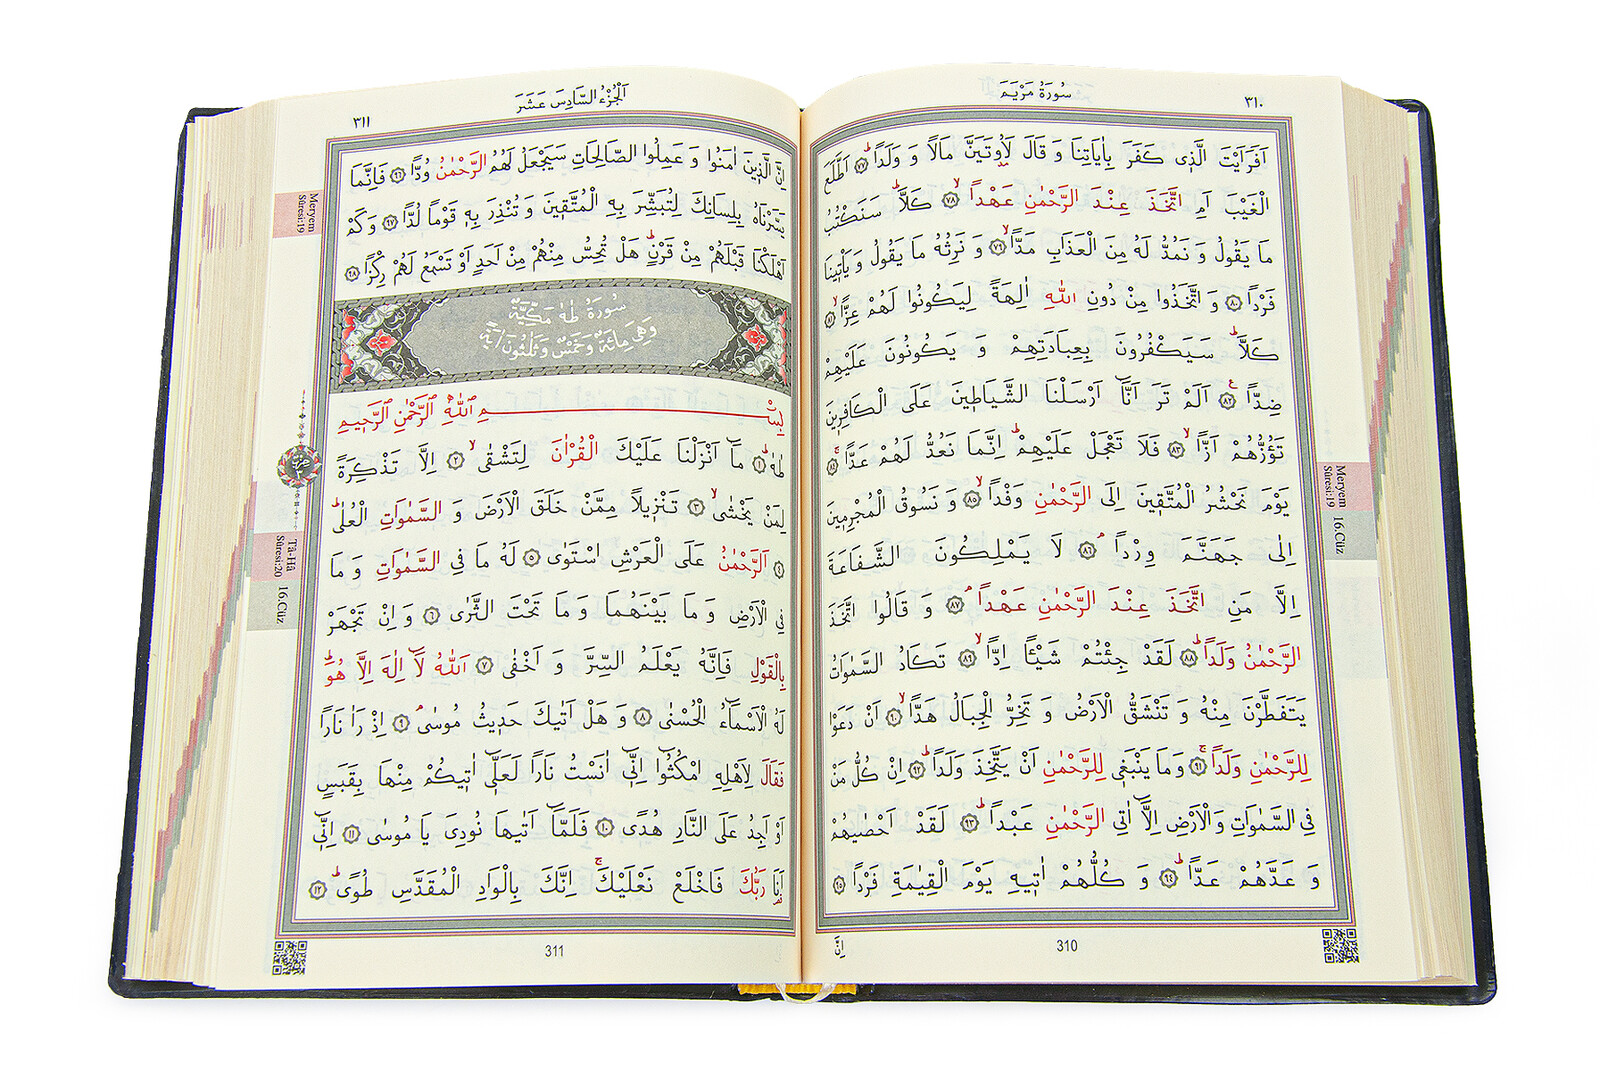 سُورَةُ مَرْيَمَ
٣١٠
اَفَرَاَيْتَ الَّذ۪ي كَفَرَ بِاٰيَاتِنَا وَ قَالَ لَاُو۫تَيَنَّ مَالًا وَ وَلَدًاۜ ﴿٧٧﴾ اَطَّلَعَ
الْغَيْبَ اَمِ اتَّخَذَ عِنْدَ الرَّحْمٰنِ عَهْدًاۙ ﴿٧٨﴾ كَلَّاۜ سَنَكْتُبُ
مَا يَقُولُ وَ نَمُدُّ لَهُ مِنَ الْعَذَابِ مَدًّاۙ ﴿٧٩﴾ وَ نَرِثُهُ مَا يَقُولُ وَ يَأْت۪ينَا
فَرْدًا ﴿٨٠﴾ وَ اتَّخَذُوا مِنْ دُونِ اللّٰهِ اٰلِهَةً لِيَكُونُوا لَهُمْ عِزًّاۙ ﴿٨١﴾
كَلَّاۜ سَيَكْفُرُونَ بِعِبَادَتِهِمْ وَ يَكُونُونَ عَلَيْهِمْ
ضِدًّا۟ ﴿٨٢﴾ اَلَمْ تَرَ اَنَّٓا اَرْسَلْنَا الشَّيَاط۪ينَ عَلَى الْكَافِر۪ينَ
تَؤُزُّهُمْ اَزًّاۙ ﴿٨٣﴾ فَلَا تَعْجَلْ عَلَيْهِمْۜ اِنَّمَا نَعُدُّ لَهُمْ عَدًّاۚ ﴿٨٤﴾
يَوْمَ نَحْشُرُ الْمُتَّق۪ينَ اِلَى الرَّحْمٰنِ وَفْدًاۙ ﴿٨٥﴾ وَ نَسُوقُ الْمُجْرِم۪ينَ
اِلٰى جَهَنَّمَ وِرْدًاۢ ﴿٨٦﴾ لَا يَمْلِكُونَ الشَّفَاعَةَ
اِلَّا مَنِ اتَّخَذَ عِنْدَ الرَّحْمٰنِ عَهْدًاۢ ﴿٨٧﴾ وَ قَالُوا اتَّخَذَ
الرَّحْمٰنُ وَلَدًاۜ ﴿٨٨﴾ لَقَدْ جِئْتُمْ شَيْـًٔا اِدًّاۙ ﴿٨٩﴾ تَكَادُ السَّمٰوَاتُ
يَتَفَطَّرْنَ مِنْهُ وَ تَنْشَقُّ الْاَرْضُ وَ تَخِرُّ الْجِبَالُ هَدًّاۙ ﴿٩٠﴾ اَنْ دَعَوْا
لِلرَّحْمٰنِ وَلَدًاۚ ﴿٩١﴾ وَ مَا يَنْبَغ۪ي لِلرَّحْمٰنِ اَنْ يَتَّخِذَ وَلَدًاۜ ﴿٩٢﴾ اِنْ كُلُّ مَنْ
فِي السَّمٰوَاتِ وَ الْاَرْضِ اِلَّٓا اٰتِي الرَّحْمٰنِ عَبْدًاۜ ﴿٩٣﴾ لَقَدْ اَحْصٰيهُمْ
وَ عَدَّهُمْ عَدًّاۜ ﴿٩٤﴾ وَ كُلُّهُمْ اٰت۪يهِ يَوْمَ الْقِيٰمَةِ فَرْدًا ﴿٩٥﴾
Meryem
Sûresi:19
16.Cüz
310
اِنَّ
اَلْجُزْءُ السَّادِسَ عَشَرَ
٣١١
اِنَّ الَّذ۪ينَ اٰمَنُوا وَ عَمِلُوا الصَّالِحَاتِ سَيَجْعَلُ لَهُمُ الرَّحْمٰنُ وُدًّا ﴿٩٦﴾ فَاِنَّمَا
يَسَّرْنَاهُ بِلِسَانِكَ لِتُبَشِّرَ بِهِ الْمُتَّق۪ينَ وَ تُنْذِرَ بِه۪ قَوْمًا لُدًّا ﴿٩٧﴾ وَ كَمْ
اَهْلَكْنَا قَبْلَهُمْ مِنْ قَرْنٍۜ هَلْ تُحِسُّ مِنْهُمْ مِنْ اَحَدٍ اَوْ تَسْمَعُ لَهُمْ رِكْزًا ﴿٩٨﴾
سُورَةُ طٰهٰ مَكِّيَّةٌ
وَهِيَ مِائَةٌ وَ خَمْسٌ وَ ثَلٰثُونَ اٰيَةً
بِسْمِ اللّٰهِ الرَّحْمٰنِ الرَّح۪يمِ
طٰهٰۜ ﴿١﴾ مَٓا اَنْزَلْنَا عَلَيْكَ الْقُرْاٰنَ لِتَشْقٰىۙ ﴿٢﴾ اِلَّا تَذْكِرَةً
لِمَنْ يَخْشٰىۙ ﴿٣﴾ تَنْز۪يلًا مِمَّنْ خَلَقَ الْاَرْضَ وَ السَّمٰوَاتِ الْعُلٰىۜ
﴿٤﴾ اَلرَّحْمٰنُ عَلَى الْعَرْشِ اسْتَوٰى ﴿٥﴾ لَهُ مَا فِي السَّمٰوَاتِ وَ مَا
فِي الْاَرْضِ وَ مَا بَيْنَهُمَا وَ مَا تَحْتَ الثَّرٰى ﴿٦﴾ وَ اِنْ تَجْهَرْ
بِالْقَوْلِ فَاِنَّهُ يَعْلَمُ السِّرَّ وَ اَخْفٰى ﴿٧﴾ اَللّٰهُ لَٓا اِلٰهَ اِلَّا هُوَۜ
لَهُ الْاَسْمَٓاءُ الْحُسْنٰى ﴿٨﴾ وَ هَلْ اَتٰيكَ حَد۪يثُ مُوسٰىۢ ﴿٩﴾ اِذْ رَاٰ نَارًا
فَقَالَ لِاَهْلِهِ امْكُثُٓوا اِنّ۪ٓي اٰنَسْتُ نَارًا لَعَلّ۪ٓي اٰت۪يكُمْ مِنْهَا بِقَبَسٍ
اَوْ اَجِدُ عَلَى النَّارِ هُدًى ﴿١٠﴾ فَلَمَّٓا اَتٰيهَا نُودِيَ يَا مُوسٰى ﴿١١﴾ اِنّ۪ٓي
اَنَا۬ رَبُّكَ فَاخْلَعْ نَعْلَيْكَۚ اِنَّكَ بِالْوَادِ الْمُقَدَّسِ طُوًىۜ ﴿١٢﴾
Meryem
Sûresi:19
Tâ-Hâ
Sûresi:20
16.Cüz
311